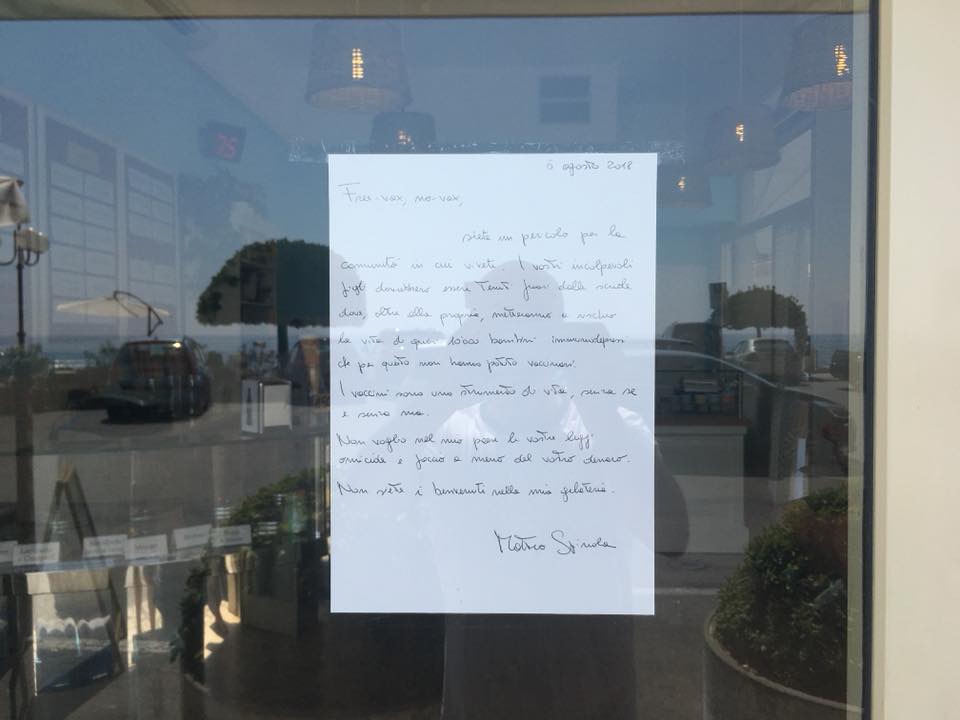 6 agosto 2018
Free-vax, no-vax,
siete un pericolo per la
comunità in cui vivete. I vostri incolpevoli
figli dovrebbero essere tenuti fuori dalle scuole
dove, oltre alla propria, metteranno a rischio
la vita di quei 10000 bambini immunodepressi
che per questo non hanno potuto vaccinarsi.
I vaccini sono uno strumento di vita, senza se
e senza ma.
Non voglio nel mio paese le vostre leggi
omicide e faccio a meno del vostro denaro.
Non siete i benvenuti nella mia gelateria.
Matteo Spinola
75